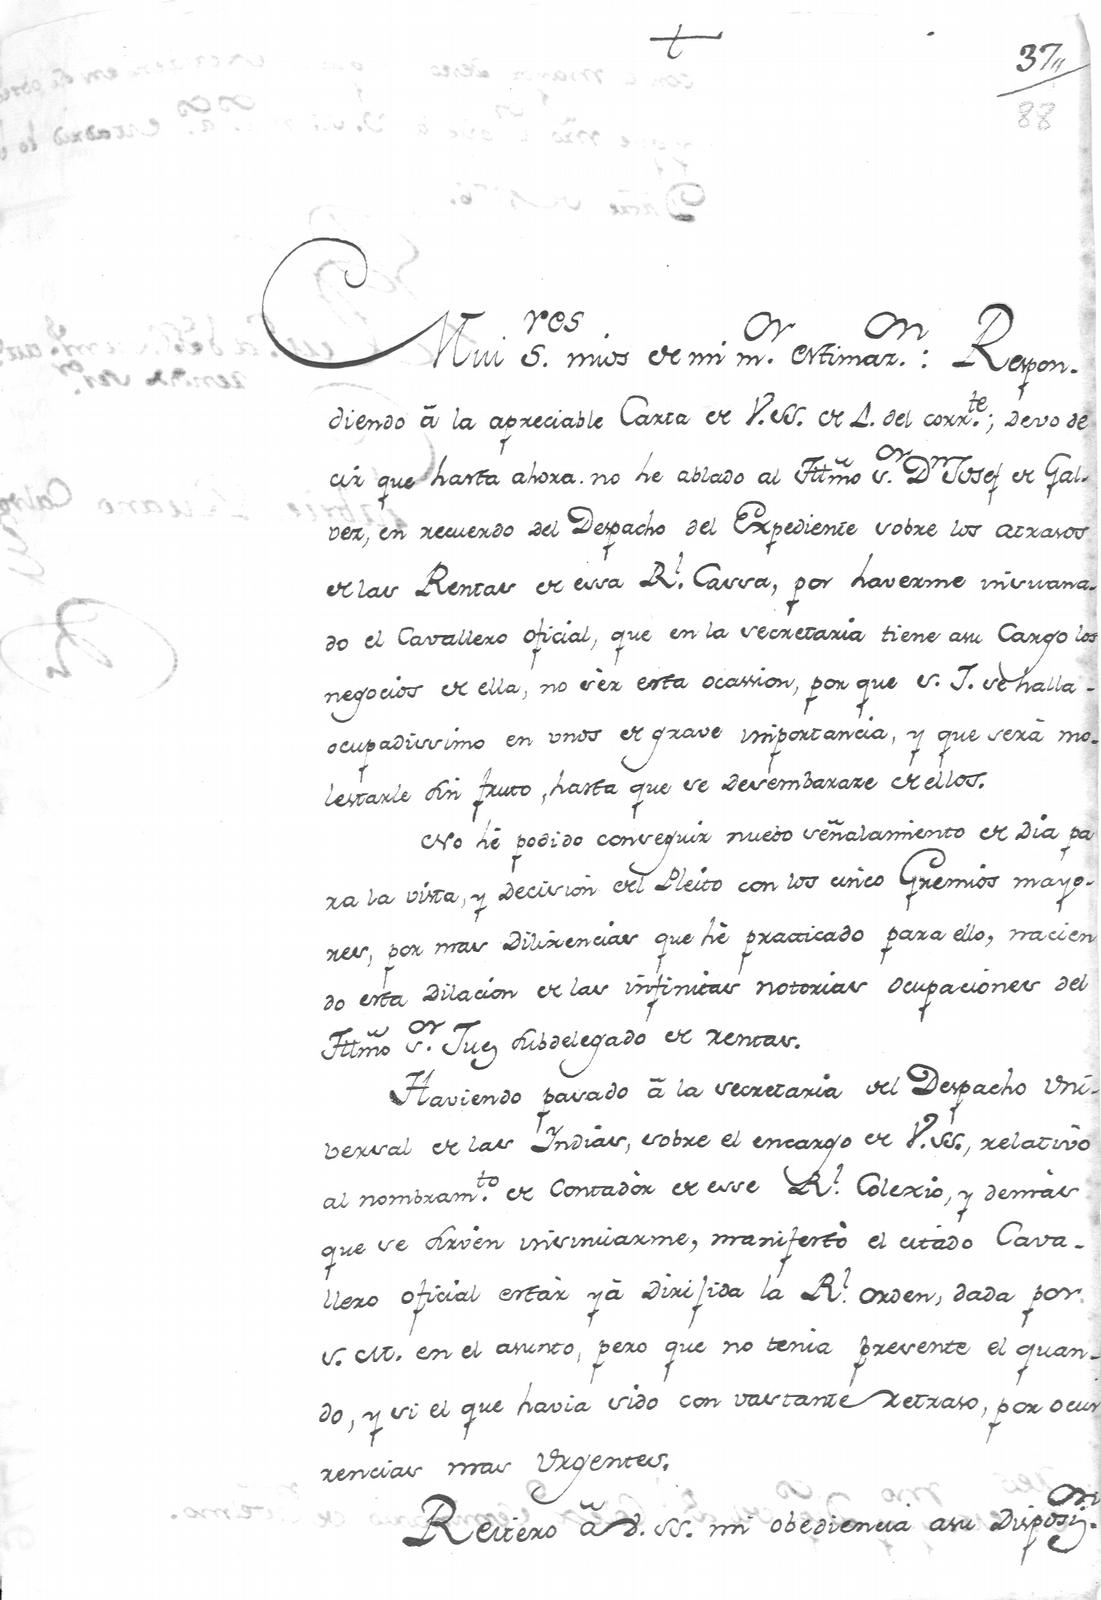 37
88
Mui S.res mios de mi m.or estimaz.on: Respon-
diendo â la apreciable Carta de V.SS. de 2. del corr.te; devo de
cir que hasta ahora no he ablado al Illmo s.or D.n Josef de Gal-
vez, en recuerdo del Despacho del Expediente sobre los atrasos
de las Rentas de essa R.l Cassa, por haverme insinuana-
do el Cavallero oficial, que en la secretaria tiene asu Cargo los
negocios de ella, no sèr esta ocassion, por que s. I. se halla
ocupadissimo en unos de grave importancia, y que será mo-
lestarle sin fruto, hasta que se desembaraze de ellos.
No hè podido conseguir nuebo señalamiento de Dia pa
ra la vista, y Decision del Pleito con los cinco Gremios mayo-
res, por mas Dilixencias que hè practicado para ello, nacien
do esta Dilacion de las infinitas notorias ocupaciones del
Illmo s.or Juez subdelegado de rentas.
Haviendo pasado â la secretaria del Despacho Uni-
versal de las Indias, sobre el encargo de V.SS., relativo
al nombram.to de Contadòr de esse R.l Colexio, y demàs
que se sirven insinuarme, manifestò el citado Cava-
llero oficial estàr yà dirijida la R.l orden, dada por
S. M. en el asunto, pero que no tenia presente el quan-
do, y si el que havia sido con vastante retraso, por ocur
rencias mas Urgentes.
Reitero â V.SS. mi obediencia asu Disposiz.on